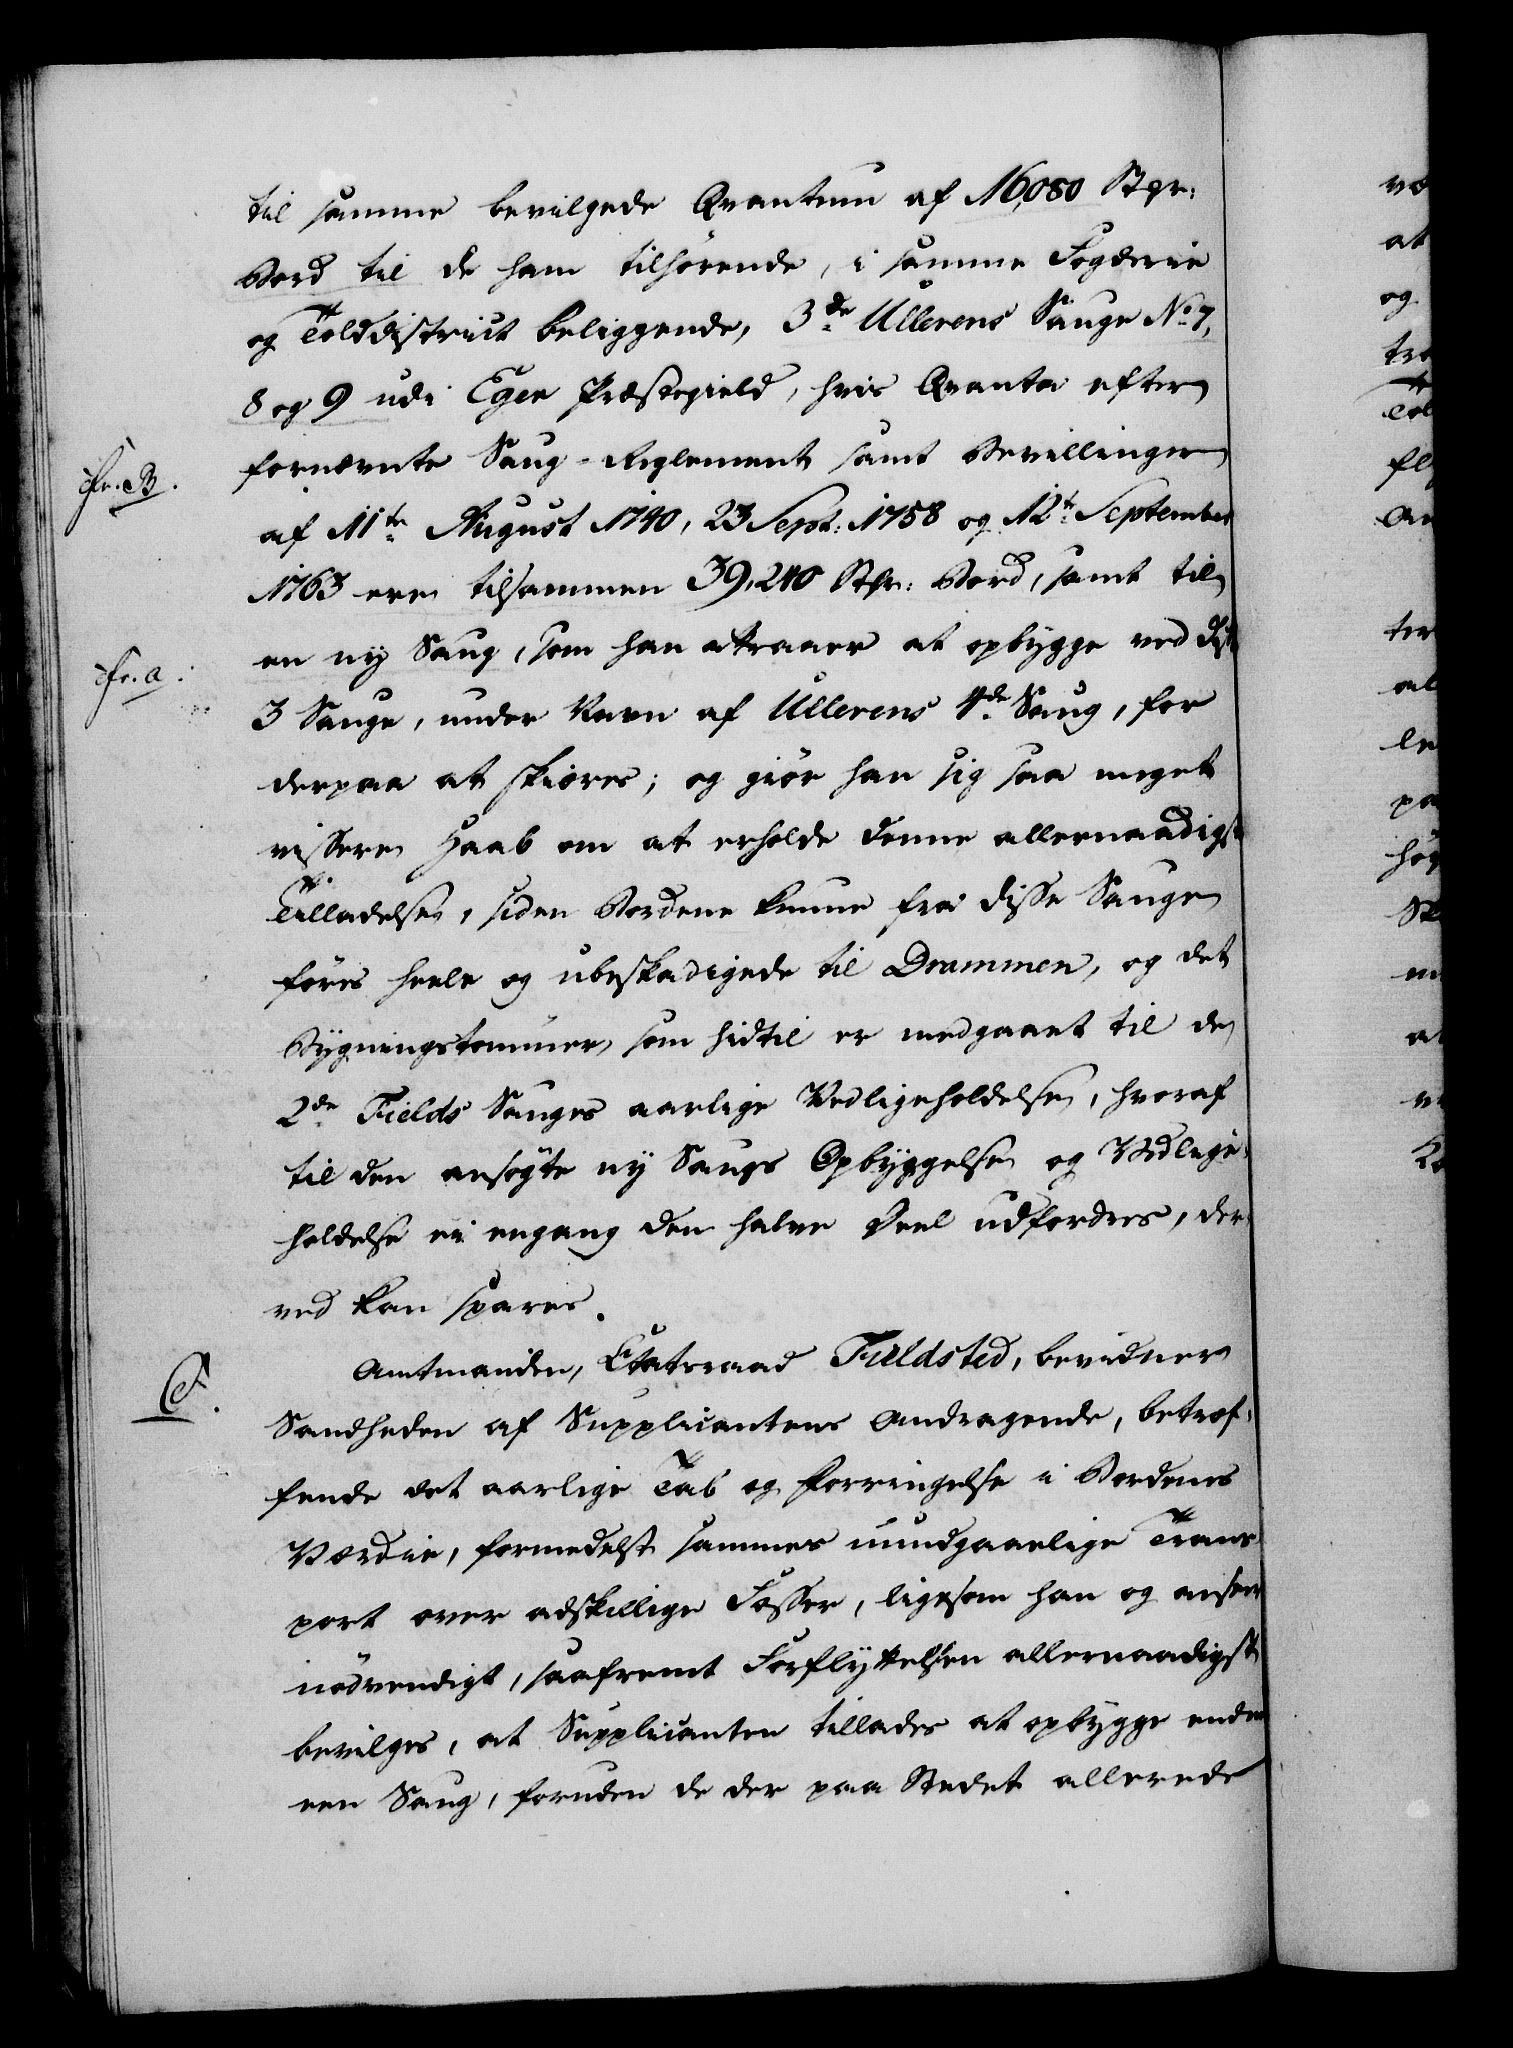 til samme bevilgede Qvantum af 16,080 Stkr:
Bord til de ham tilhörende, i samme Fogderie
og Tolddistrict beliggende, 3de Ullerens Sauge No 7,
8 og 9 udi Eger Præstegield, hvis Qvanta efter
fornævnte Saug-Reglement samt Bevillinger
cfr. B.
af 11te August 1740, 23 Sept: 1758 og 12te September
1763 ere tilsammen 39,240 Stkr: Bord, samt til
cfr. a.
en ny Saug, som han attraaer at opbygge ved disse
3 Sauge, under Navn af Ullerens 4de Saug, for
derpaa at skiæres; og giör han sig saa meget
vissere Haab om at erholde denne allernaadigste
Tilladelse, siden Bordene kunne fra disse Sauge
föres heele og ubeskadigede til Drammen, og det
Bygningstømmer, som hidtil er medgaaet til de
2de Fields Sauges aarlige Vedligeholdelse, hvoraf
til den ansögte ny Saugs Opbyggelse og Vedlige-
holdelse ei engang den halve Deel udfordres, der-
ved kan spares.
Amtmanden, Etatsraad Fieldsted, bevidner
C.
Sandheden af Supplicantens Andragende, betref-
fende det aarlige Tab og Forringelse i Bordenes
Værdie, formedelst sammes uundgaaelige Trans-
port over adskillige Fosser, ligesom han og anseer
nödvendigt, saafremt Forflyttelsen allernaadigst
bevilges, at Supplicanten tillades at opbygge endnu
een Saug, foruden de der paa Stedet allerede